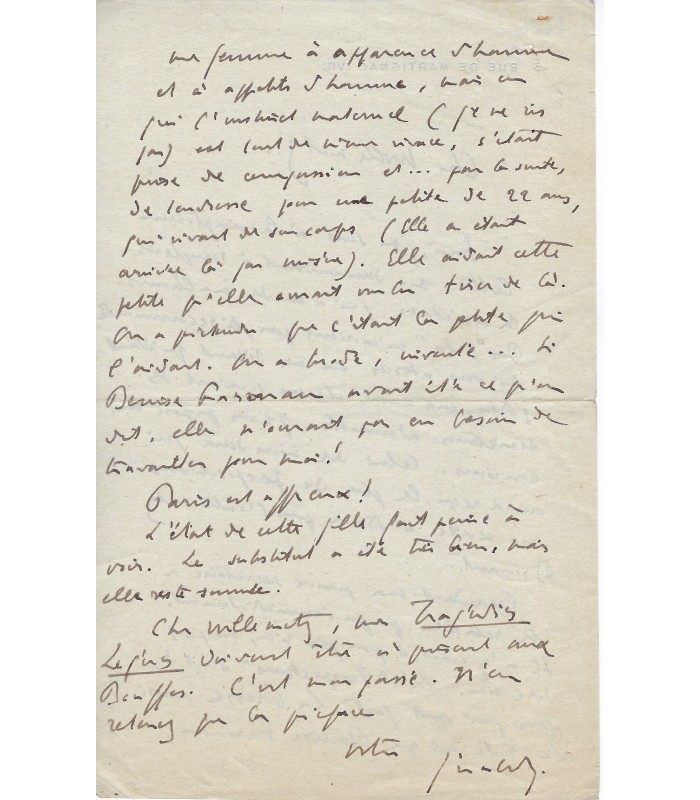 une femme à apparence d'homme
et à appétits d'homme, mais en
qui l'instinct maternel (je ne ris
pas) est tout de même vivace, s'était
prise de compassion et... par la suite,
de tendresse pour une petite de 22 ans,
qui vivait de son corps (Elle en était
arrivée là par misère). Elle aidait cette
petite qu'elle aurait voulu tirer de là.
On a prétendu que c'était la petite qui
l'aidait. On a brodé, inventé... Si
Denise avait été ce qu'on
dit, elle n'aurait pas eu besoin de
travailler pour moi!
Paris est affreux!
L'état de cette fille fait peine à
voir. Le substitut a été très bien, mais
elle reste
Cher Willemetz, mes Tragédies
Légères doivent être à présent aux
Bouffes. C'est mon passé. N'en
retenez que la préface
votre
5 RUE DE MARTIGNAC (VII)